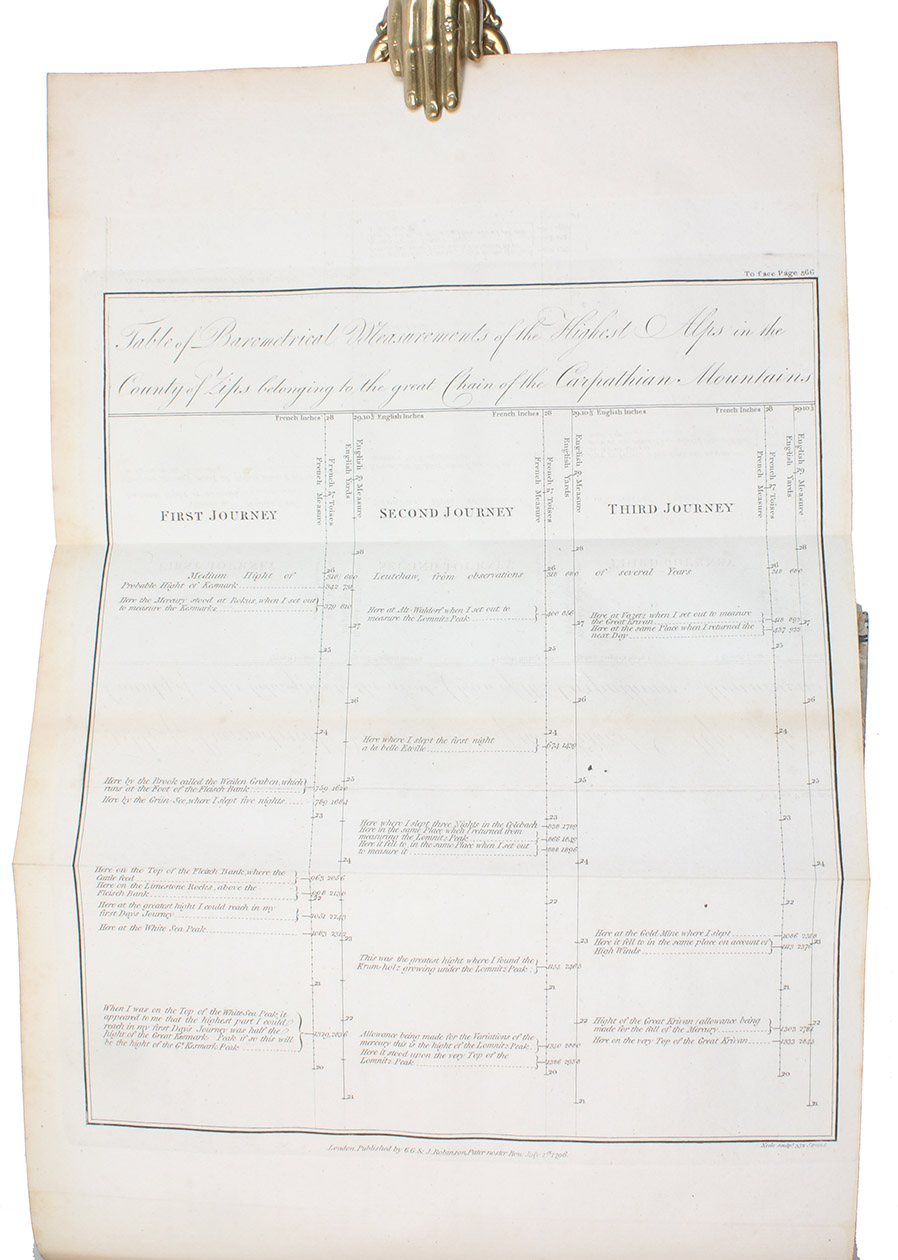 To face Page 366
Table of Barometrical Measurements of the Highest Alps in the
County of Zips belonging to the great Chain of the Carpathian Mountains
French Inches 28 29.10½ English Inches French Inches 28 29.10½ English Inches French Inches 28 29.10½
French Measure
French Toises
English Yards
English Measure
French Measure
French Toises
English Yards
English Measure
French Measure
French Toises
English Yards
English Measure
FIRST JOURNEY SECOND JOURNEY THIRD JOURNEY
28 28 28
26 26 26
Medium Hight of 318 680 Leutchaw, from observations 318 680 of several Years 318 680
Probable Hight of Kesmark 342
Here the Mercury stood at Rokus, when I set out
to measure the Kesmarks 379 810
27
Here at Alt-Walderf when I set out to
measure the Lomnitz Peak 400 856
27
Here at Vazetz when I set out to measure
the Great Krivan 418
Here at the same Place when I returned the
next Day 437
27
25 25 25
26 26 26
24 24 24
Here where I slept the first night
a la belle Etoille 674
25 25 25
Here by the Brook called the Weiden Graben, which
runs at the Foot of the Fleisch Bank 759 1620
Here by the Grün-See, where I slept five nights 789 1684
23 23 23
Here where I slept three Nights in the Colebach 838 1789
Here in the same Place when I returned from
measuring the Lomnitz Peak 866
Here it fell to, in the same Place when I set out
to measure it 888 1896
24 24 24
Here on the Top of the Fleisch Bank, where the
Cattle feed 963 2056
Here on the Limestone Rocks, above the
Fleisch Bank 998 2130
22 22 22
Here at the greatest hight I could reach in my
first Days Journey 1051 2243
Here at the White Sea Peak 1083
23 23 23
Here at the Gold Mine where I slept 1086
Here it fell to in the same place on account of
High Winds 1113
This was the greatest hight where I found the
Krum-holz growing under the Lomnitz Peak 1155 2465
21 21 21
When I was on the Top of the White Sea Peak, it
appeared to me that the highest part I could
reach in my first Days Journey was half the
hight of the Great Kesmark Peak if so this will
be the hight of the Gt. Kesmark Peak
22 22 22
Allowance being made for the Variations of the
mercury this is the hight of the Lomnitz Peak 1350
Here it stood upon the very Top of the
Lomnitz Peak 1386
Hight of the Great Krivan (allowance being
made for the fall of the Mercury
Here on the very Top of the Great Krivan 1333
20 20 20
21 21 21
London, Published by G.G. & J. Robinson, Pater noster Row, July 1st 1796.
Neele sculpt. 352 Strand